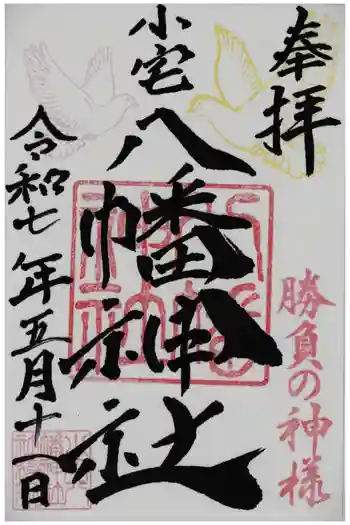 奉拝
勝負の神様
小宅
八幡神社
令和七年五月十一日